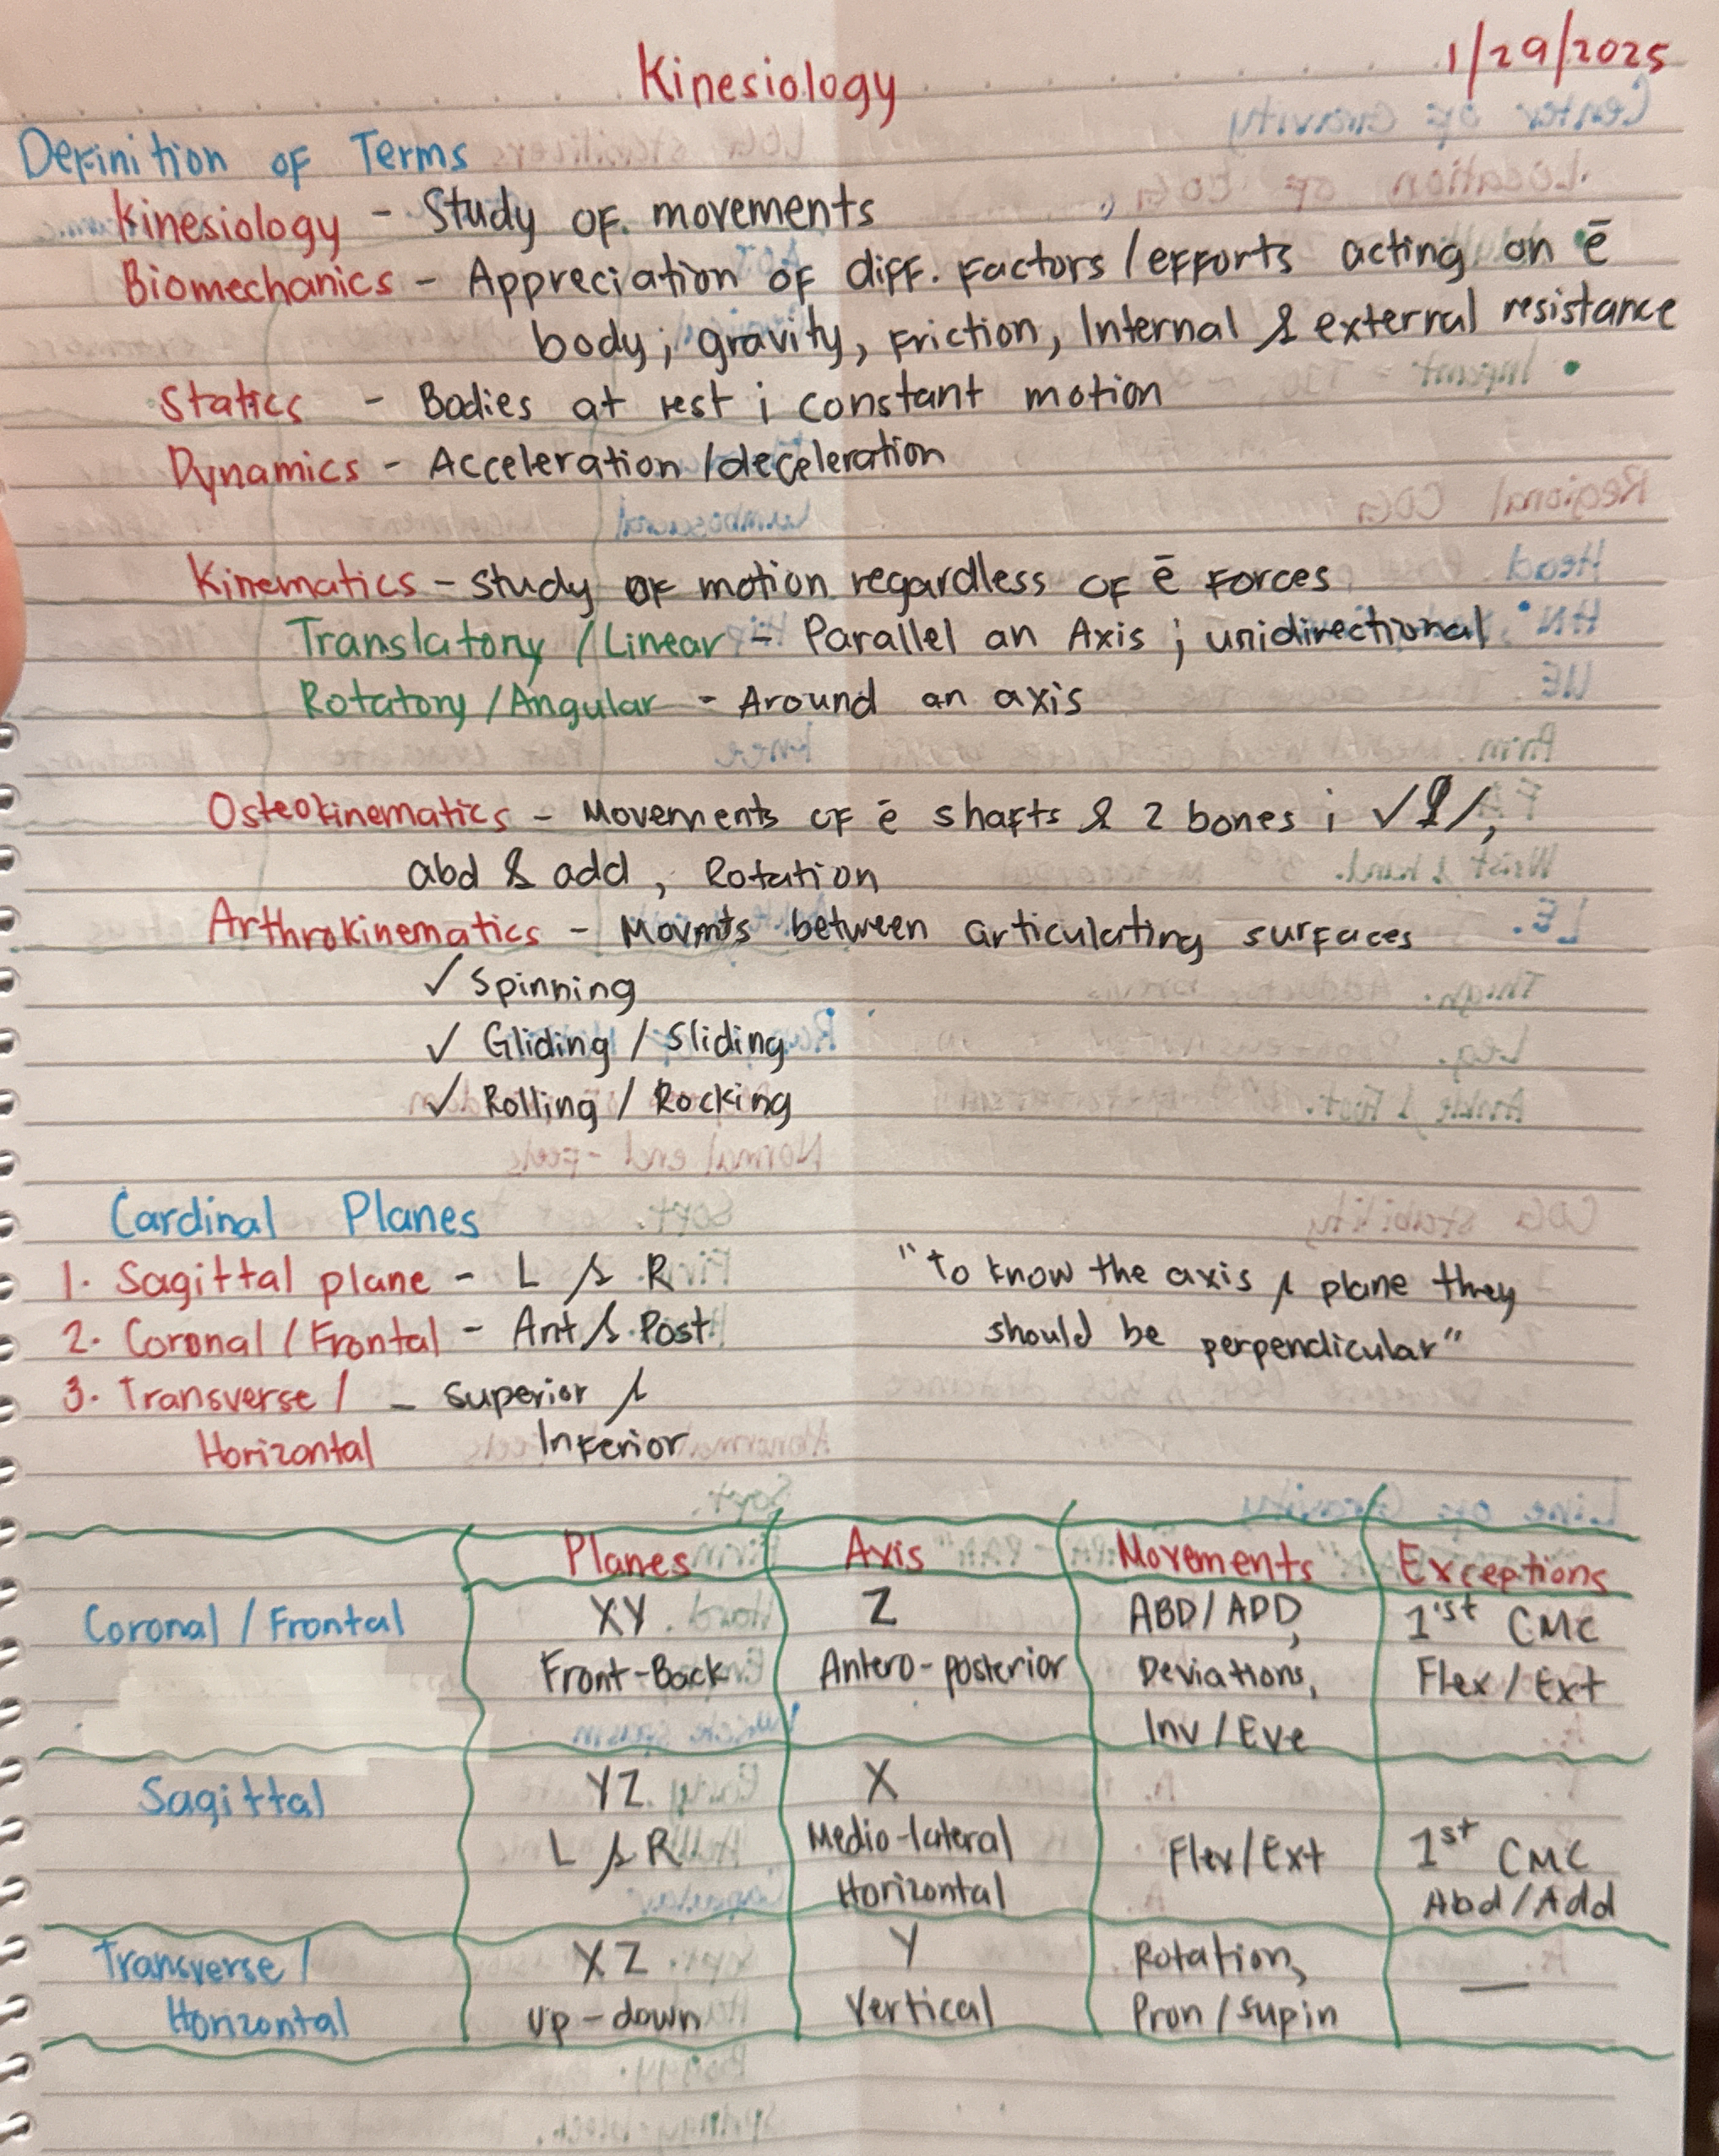 Kinesiology
1/29/2025
Definition of Terms
Kinesiology - Study of movements
Biomechanics - Appreciation of diff. factors / efforts acting on ē
body; gravity, friction, Internal & external resistance
Statics - Bodies at rest ; constant motion
Dynamics - Acceleration / deceleration
Kinematics - Study of motion regardless of ē forces
Translatory / Linear - Parallel an Axis ; unidirectional
Rotatory / Angular - Around an axis
Osteokinematics - Movements of ē shafts & 2 bones ;
abd & add , Rotation
Arthrokinematics - Movmts between articulating surfaces
✓ Spinning
✓ Gliding / Sliding
✓ Rolling / Rocking
Cardinal Planes
1. Sagittal plane - L & R
2. Coronal / Frontal - Ant & Post
3. Transverse / - Superior &
Horizontal Inferior
"To know the axis & plane they
should be perpendicular"
Planes Axis Movements Exceptions
Coronal / Frontal XY Z ABD / ADD, 1st CMC
Front-Back Antero-posterior Deviations, Flex / Ext
Inv / Eve
Sagittal YZ X
L & R Medio-lateral Flex / Ext 1st CMC
Horizontal Abd / Add
Transverse / XZ Y Rotation, —
Horizontal up-down Vertical Pron / Supin